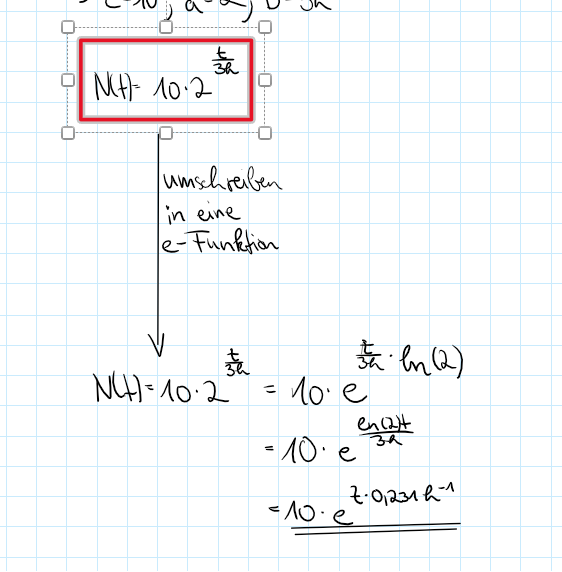 c=10, a=2, b=3h
N(t)= 10·2^(t/3h)
umschreiben
in eine
e-Funktion
N(t)=10·2^(t/3h) = 10·e^(t/3h · ln(2))
= 10·e^(ln(2)t/3h)
= 10·e^(t·0,231h⁻¹)